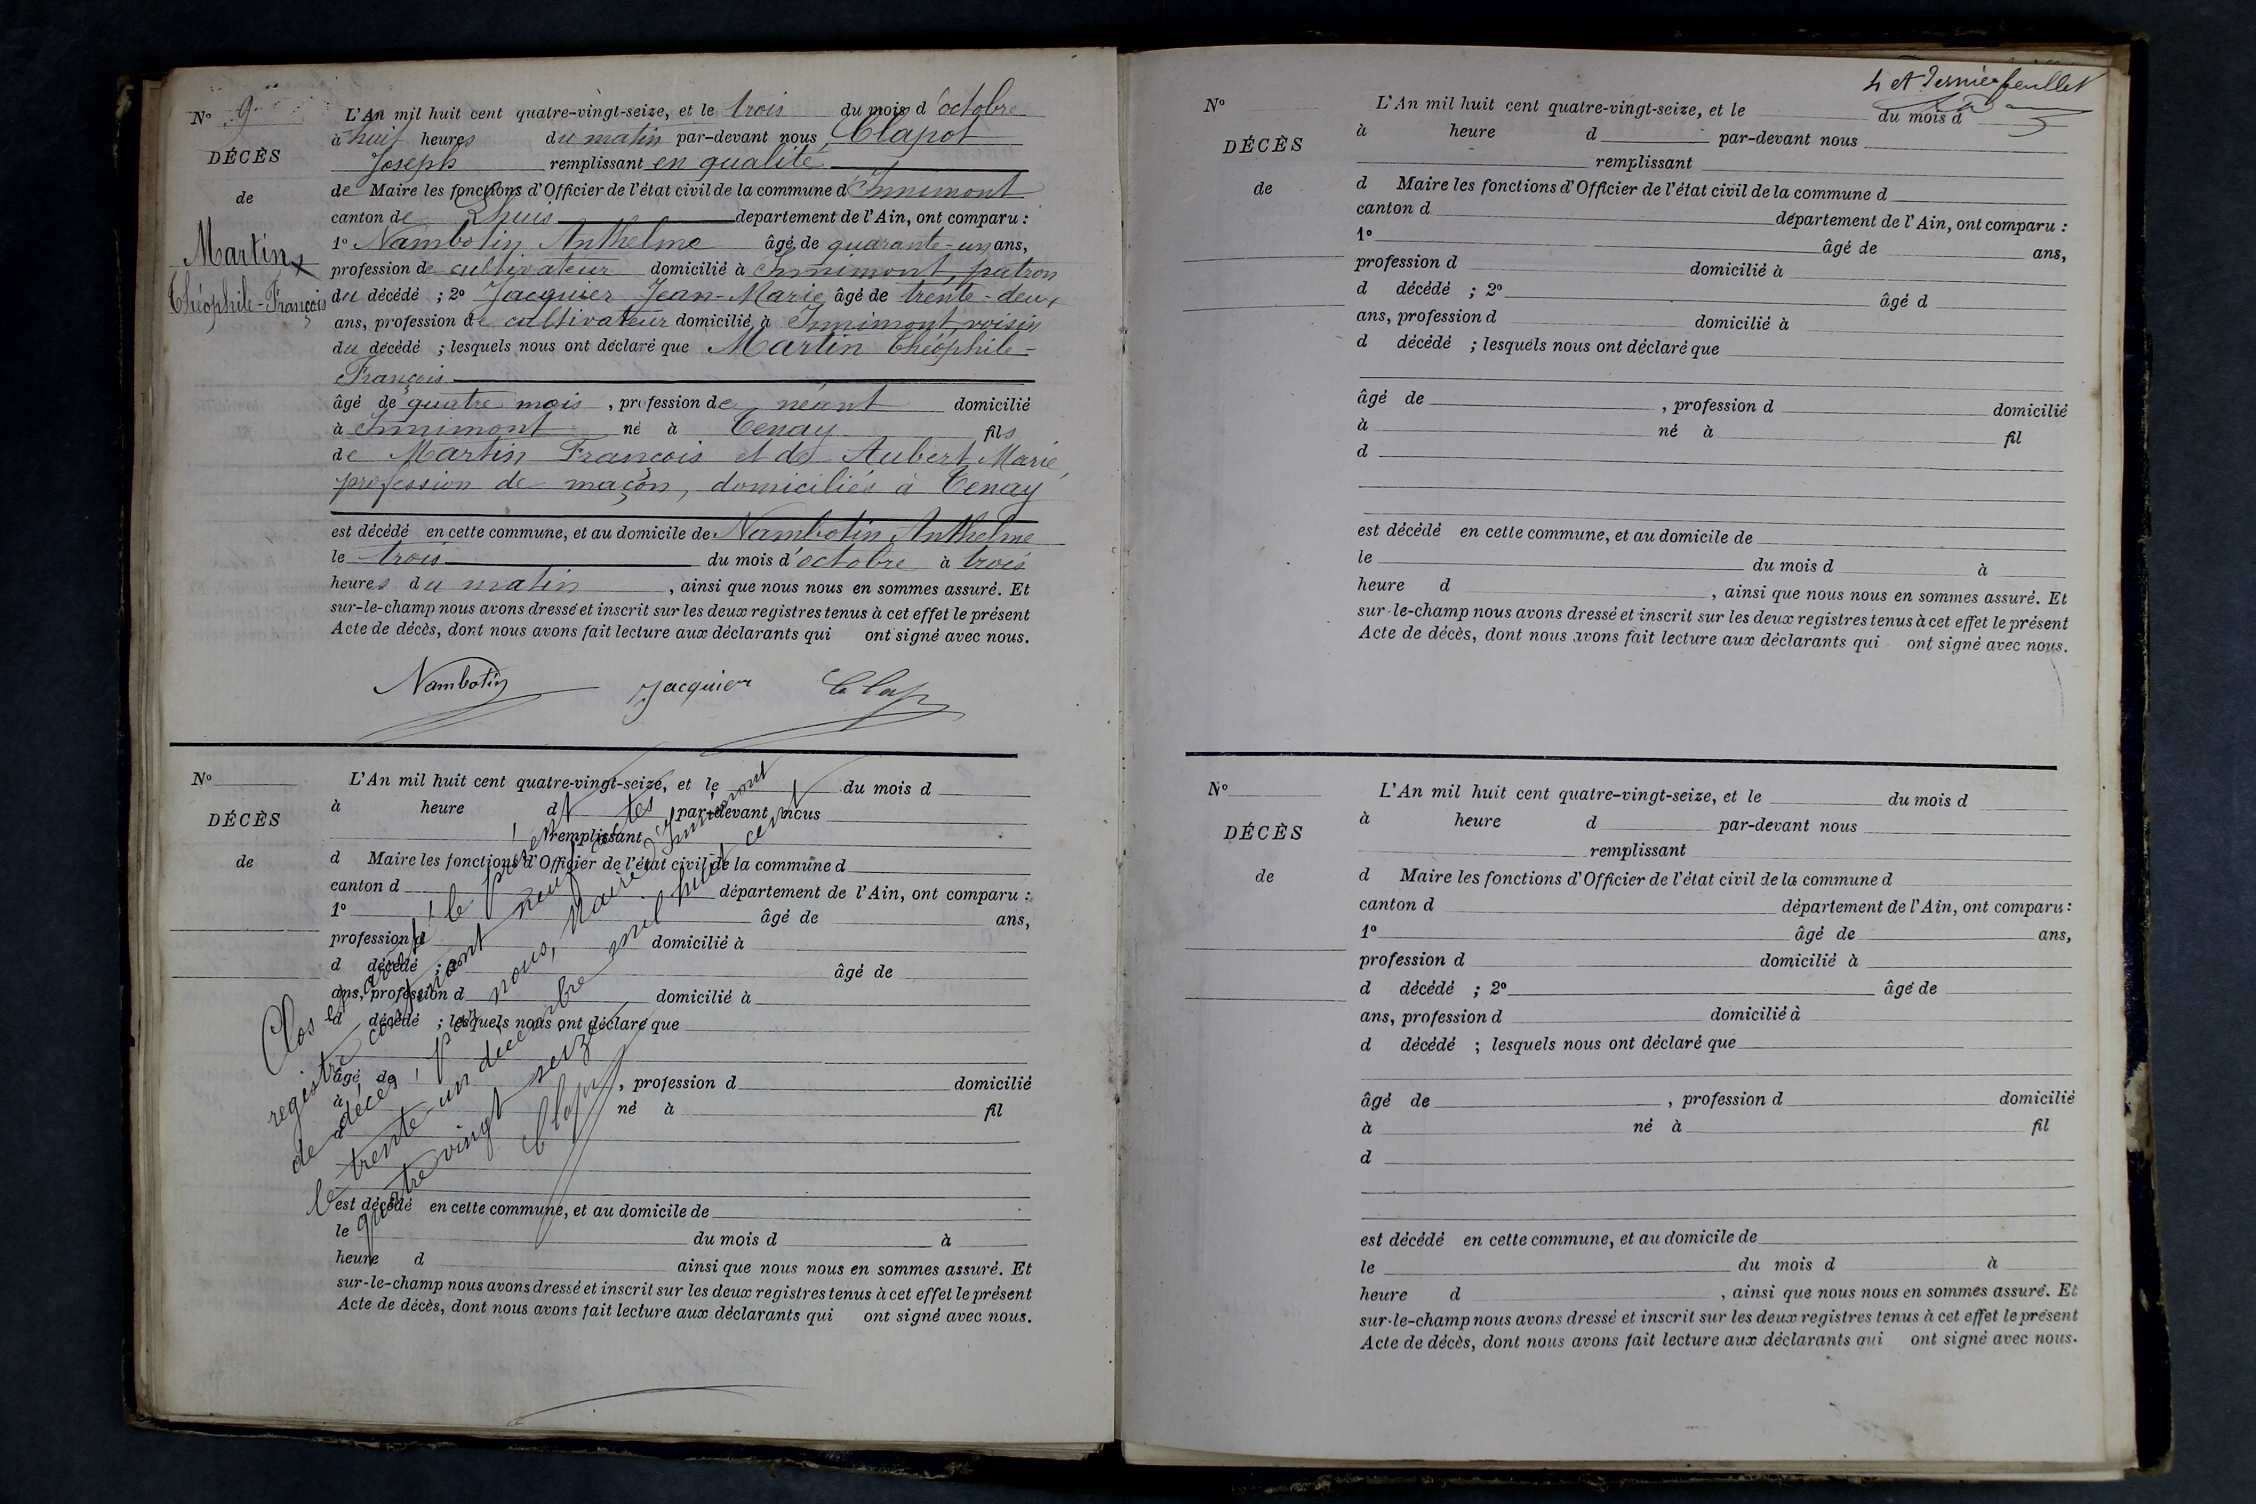 N° 9
DÉCÈS
de
Martin
Théophile-François
L'An mil huit cent quatre-vingt-seize, et le trois du mois d'octobre
à huit heures du matin par-devant nous Clapot
Joseph remplissant en qualité
de Maire les fonctions d'Officier de l'état civil de la commune d'Innimont
canton de Lhuis département de l'Ain, ont comparu :
1° Nambotin Anthelme âgé de quarante-un ans,
profession de cultivateur domicilié à Innimont, patron
du décédé ; 2° Jacquier Jean-Marie âgé de trente-deux
ans, profession de cultivateur domicilié à Innimont, voisin
du décédé ; lesquels nous ont déclaré que Martin Théophile-
François
âgé de quatre mois, profession de néant domicilié
à Innimont né à Tenay fils
de Martin François et de Aubert Marie,
profession de maçon, domiciliés à Tenay
est décédé en cette commune, et au domicile de Nambotin Anthelme
le trois du mois d'octobre à trois
heures du matin, ainsi que nous nous en sommes assuré. Et
sur-le-champ nous avons dressé et inscrit sur les deux registres tenus à cet effet le présent
Acte de décès, dont nous avons fait lecture aux déclarants qui ont signé avec nous.
Nambotin Jacquier Clap
N°
DÉCÈS
de
L'An mil huit cent quatre-vingt-seize, et le du mois d
à heure d par-devant nous
remplissant
d Maire les fonctions d'Officier de l'état civil de la commune d
canton d département de l'Ain, ont comparu :
1° âgé de ans,
profession d domicilié à
d décédé ; 2° âgé de
ans, profession d domicilié à
d décédé ; lesquels nous ont déclaré que
âgé de , profession d domicilié
à né à fil
d
est décédé en cette commune, et au domicile de
le du mois d à
heure d ainsi que nous nous en sommes assuré. Et
sur-le-champ nous avons dressé et inscrit sur les deux registres tenus à cet effet le présent
Acte de décès, dont nous avons fait lecture aux déclarants qui ont signé avec nous.
Clos et arrêté le présent
registre contenant neuf actes
de décès, par nous, Maire d'Innimont
le trente-un décembre mil huit cent
quatre vingt seize
Clap
4 et dernier feuillet
N°
DÉCÈS
de
L'An mil huit cent quatre-vingt-seize, et le du mois d
à heure d par-devant nous
remplissant
d Maire les fonctions d'Officier de l'état civil de la commune d
canton d département de l'Ain, ont comparu :
1° âgé de ans,
profession d domicilié à
d décédé ; 2° âgé d
ans, profession d domicilié à
d décédé ; lesquels nous ont déclaré que
âgé de , profession d domicilié
à né à fil
d
est décédé en cette commune, et au domicile de
le du mois d à
heure d , ainsi que nous nous en sommes assuré. Et
sur-le-champ nous avons dressé et inscrit sur les deux registres tenus à cet effet le présent
Acte de décès, dont nous avons fait lecture aux déclarants qui ont signé avec nous.
N°
DÉCÈS
de
L'An mil huit cent quatre-vingt-seize, et le du mois d
à heure d par-devant nous
remplissant
d Maire les fonctions d'Officier de l'état civil de la commune d
canton d département de l'Ain, ont comparu :
1° âgé de ans,
profession d domicilié à
d décédé ; 2° âgé de
ans, profession d domicilié à
d décédé ; lesquels nous ont déclaré que
âgé de , profession d domicilié
à né à fil
d
est décédé en cette commune, et au domicile de
le du mois d à
heure d , ainsi que nous nous en sommes assuré. Et
sur-le-champ nous avons dressé et inscrit sur les deux registres tenus à cet effet le présent
Acte de décès, dont nous avons fait lecture aux déclarants qui ont signé avec nous.